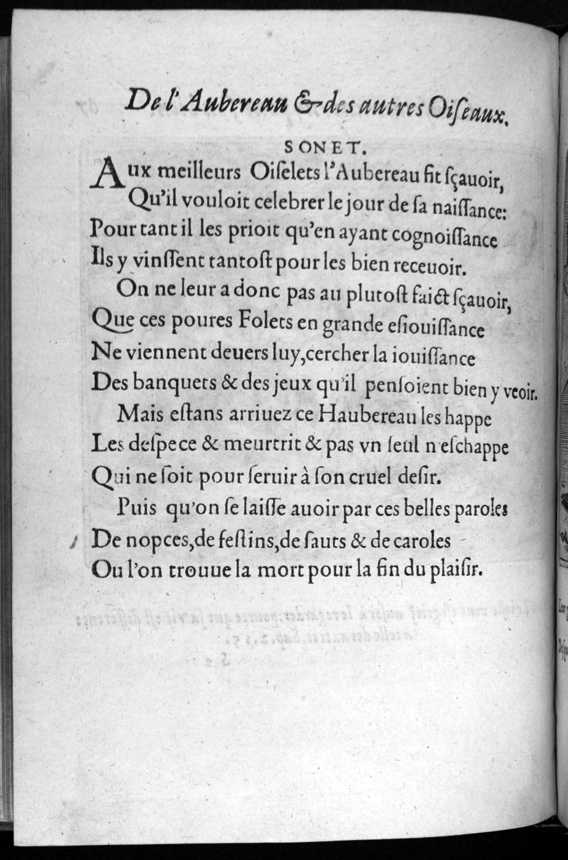 De l'Aubereau & des autres Oiſeaux.
SONET.
Aux meilleurs Oiſelets l'Aubereau fit ſçauoir,
Qu'il vouloit celebrer le jour de ſa naiſſance:
Pourtant il les prioit qu'en ayant cognoiſſance
Ils y vinſſent tantoſt pour les bien receuoir.
On ne leur a donc pas au plutoſt faict ſçauoir,
Que ces poures Folets en grande eſiouiſſance
Ne viennent deuers luy,cercher la iouiſſance
Des banquets & des jeux qu'il penſoient bien y veoir.
Mais eſtans arriuez ce Haubereau les happe
Les deſpece & meurtrit & pas vn ſeul n'eſchappe
Qui ne ſoit pour ſeruir à ſon cruel deſir.
Puis qu'on ſe laiſſe auoir par ces belles paroles
De nopces,de feſtins,de ſauts & de caroles
Ou l'on trouue la mort pour la fin du plaiſir.